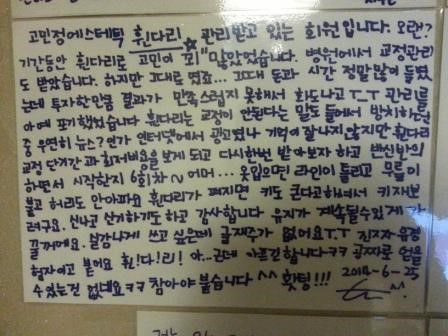 고민정에스테틱 휜다리☆관리받고 있는 회원입니다. 오랜?
기간동안 휜다리로 고민이 "꾀" 많았었습니다. 병원에서 교정관리
도 받았습니다. 하지만 그대로 였죠... 그때 돈과 시간 정말많이 들였
는데 투자한만큼 효과가 만족스럽지 못해서 화도나고 ㅜㅜ 관리를
아예 포기했었습니다. 휜다리는 교정이 안된다는 말도 들어서 방치하던
중 우연히 뉴스? 인가 인터넷에서 광고였나 기억이 잘나지 않지만 휜다리
교정 단기간과 최저비용을 보게 되고 다시한번 받아보자 하고 반신반의
하면서 시작한지 6회차~ 어머... 옷입으면 라인이 틀리고 무릎이
붙고 허리도 안아파요 휜다리가 펴지면 키도 큰다고하셔서 키재본
려구요. 신나고 신기하기도 하고 감사합니다 유지가 계속될수있게 가
끌꺼에요. 실감나게 쓰고 싶은데 글재주가 없어요ㅜㅜ 진짜 유경
험자이고 붙어요 휜!다!리! 아..근데 아프긴합니다ㅋㅋ 공짜로 얻을
수있는건 없네요ㅋㅋ 참아야 붙습니다 ^^ 홧팅!!!
2014-6-25